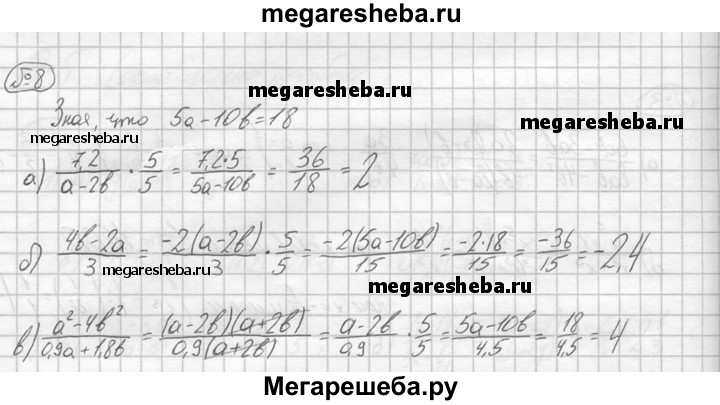 megaresheba.ru
№8
megaresheba.ru
Зная, что 5a-10b=18
megaresheba.ru
megaresheba.ru
а) 7,2/(a-2b) · 5/5 = (7,2·5)/(5a-10b) = 36/18 = 2
б) (4b-2a)/3 = (-2(a-2b))/3 · 5/5 = (-2(5a-10b))/15 = (-2·18)/15 = -36/15 = -2,4
megaresheba.ru
megaresheba.ru
в) (a²-4b²)/(0,9a+1,8b) = ((a-2b)(a+2b))/(0,9(a+2b)) = (a-2b)/0,9 · 5/5 = (5a-10b)/4,5 = 18/4,5 = 4
Мегарешеба.ру